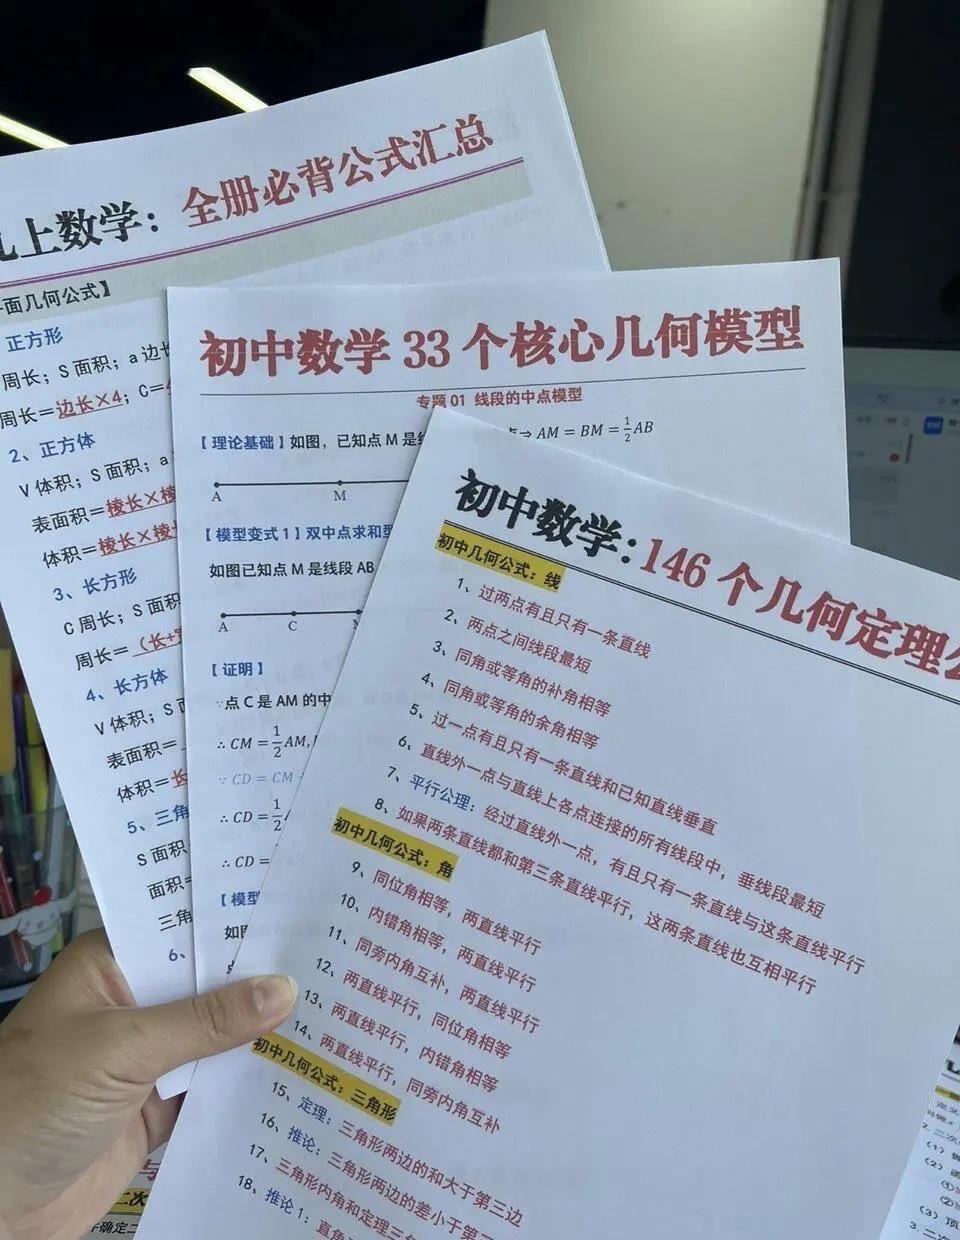 上数学：全册必背公式汇总
面几何公式】
正方形
周长；S 面积；a 边长
周长＝边长×4；C＝
2、正方体
V 体积；S 面积；a
表面积＝棱长×棱
体积＝棱长×棱
3、长方形
C 周长；S 面积
周长＝（长+
4、长方体
V 体积；S 面
表面积＝
体积＝长
5、三角
S 面积
面积＝
三角
6、
初中数学 33 个核心几何模型
专题 01 线段的中点模型
【理论基础】如图，已知点 M 是
⇒ AM = BM = 1/2 AB
A M
【模型变式 1】双中点求和型
如图已知点 M 是线段 AB
A C
【证明】
∵点 C 是 AM 的中
∴ CM = 1/2 AM,
∵ CD = CM
∴ CD = 1/2
∴ CD =
【模型
如图
初中数学：146 个几何定理
初中几何公式：线
1、过两点有且只有一条直线
2、两点之间线段最短
3、同角或等角的补角相等
4、同角或等角的余角相等
5、过一点有且只有一条直线和已知直线垂直
6、直线外一点与直线上各点连接的所有线段中，垂线段最短
7、平行公理：经过直线外一点，有且只有一条直线与这条直线平行
8、如果两条直线都和第三条直线平行，这两条直线也互相平行
初中几何公式：角
9、同位角相等，两直线平行
10、内错角相等，两直线平行
11、同旁内角互补，两直线平行
12、两直线平行，同位角相等
13、两直线平行，内错角相等
14、两直线平行，同旁内角互补
初中几何公式：三角形
15、定理：三角形两边的和大于第三边
16、推论：三角形两边的差小于第三
17、三角形内角和定理三
18、推论 1：直角
二次
确定二
2. 二次
(1)
(2)
①
②
(3) 顶
3. 二次